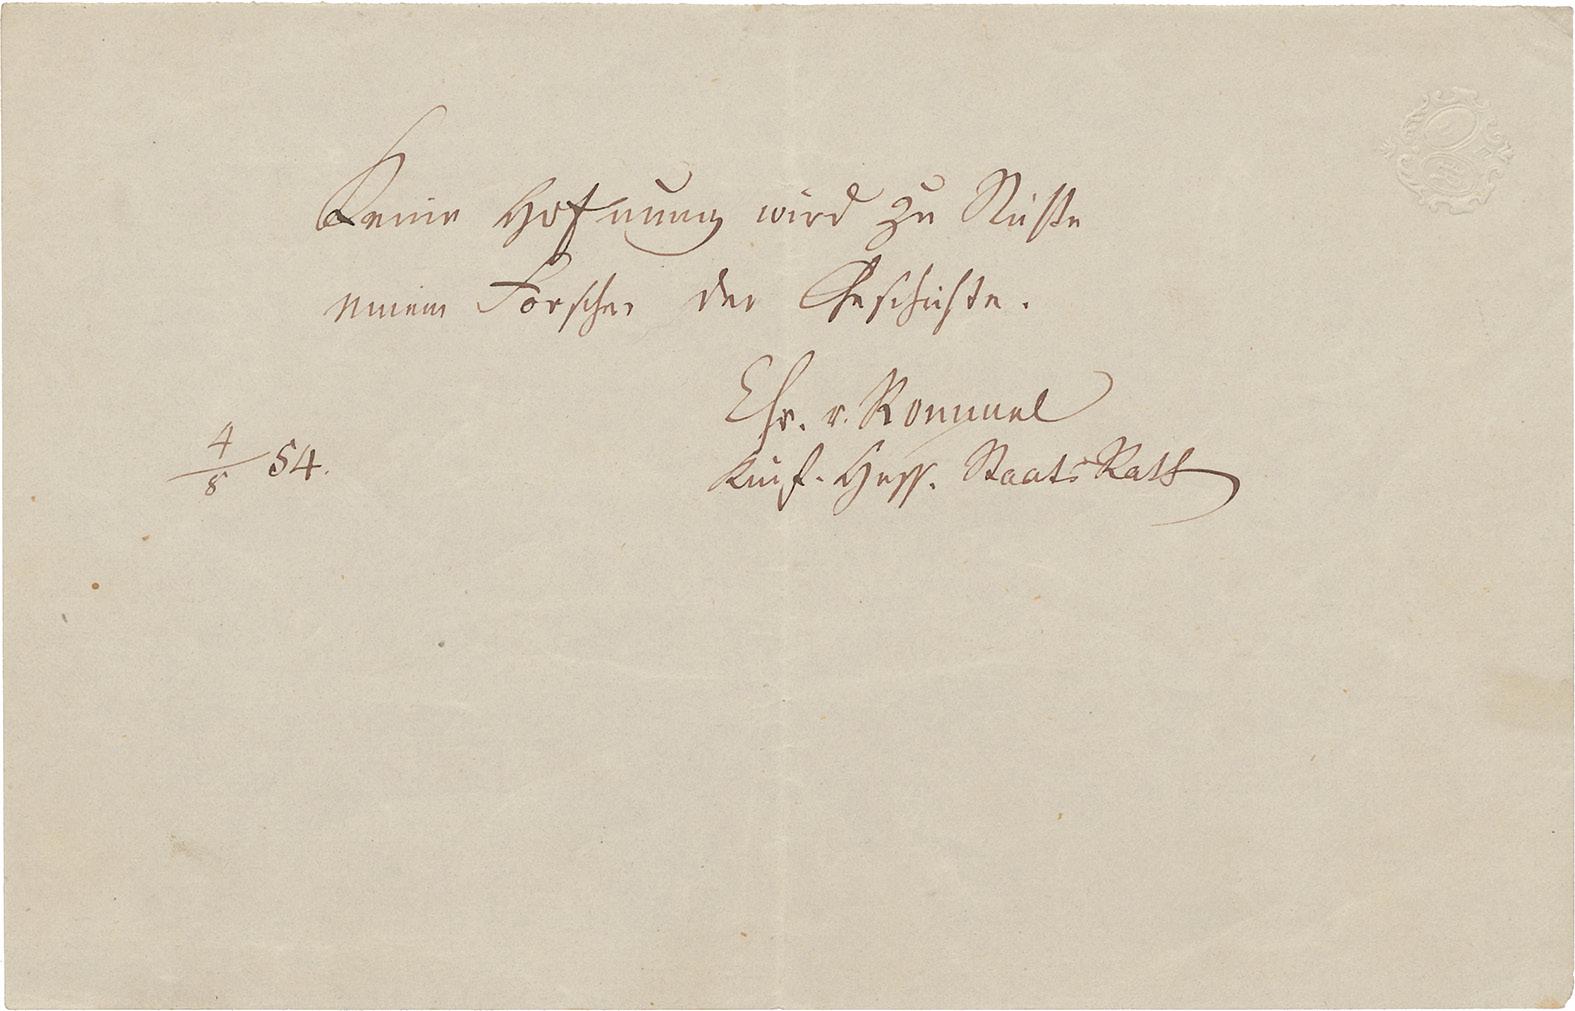 Keine Hofnung wird zu Nichte
einem Forscher der Geschichte.
Chr. v. Rommel
4/8 54.
Kurf. Hess. StaatsRath